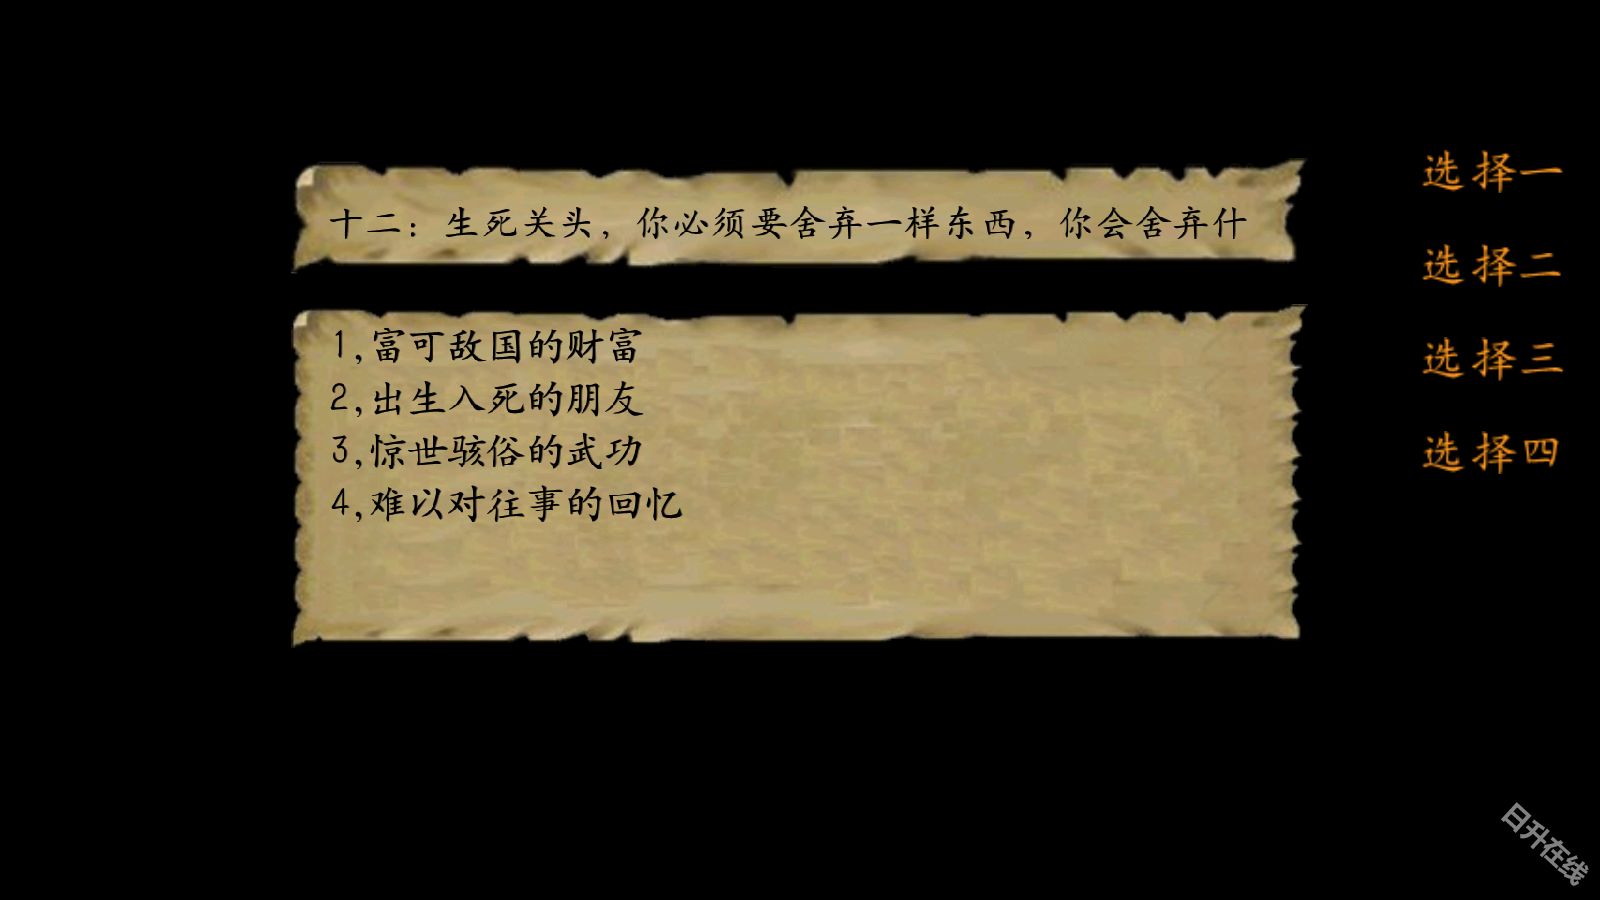 十二：生死关头，你必须要舍弃一样东西，你会舍弃什
1,富可敌国的财富
2,出生入死的朋友
3,惊世骇俗的武功
4,难以对往事的回忆
选择一
选择二
选择三
选择四
日升在线